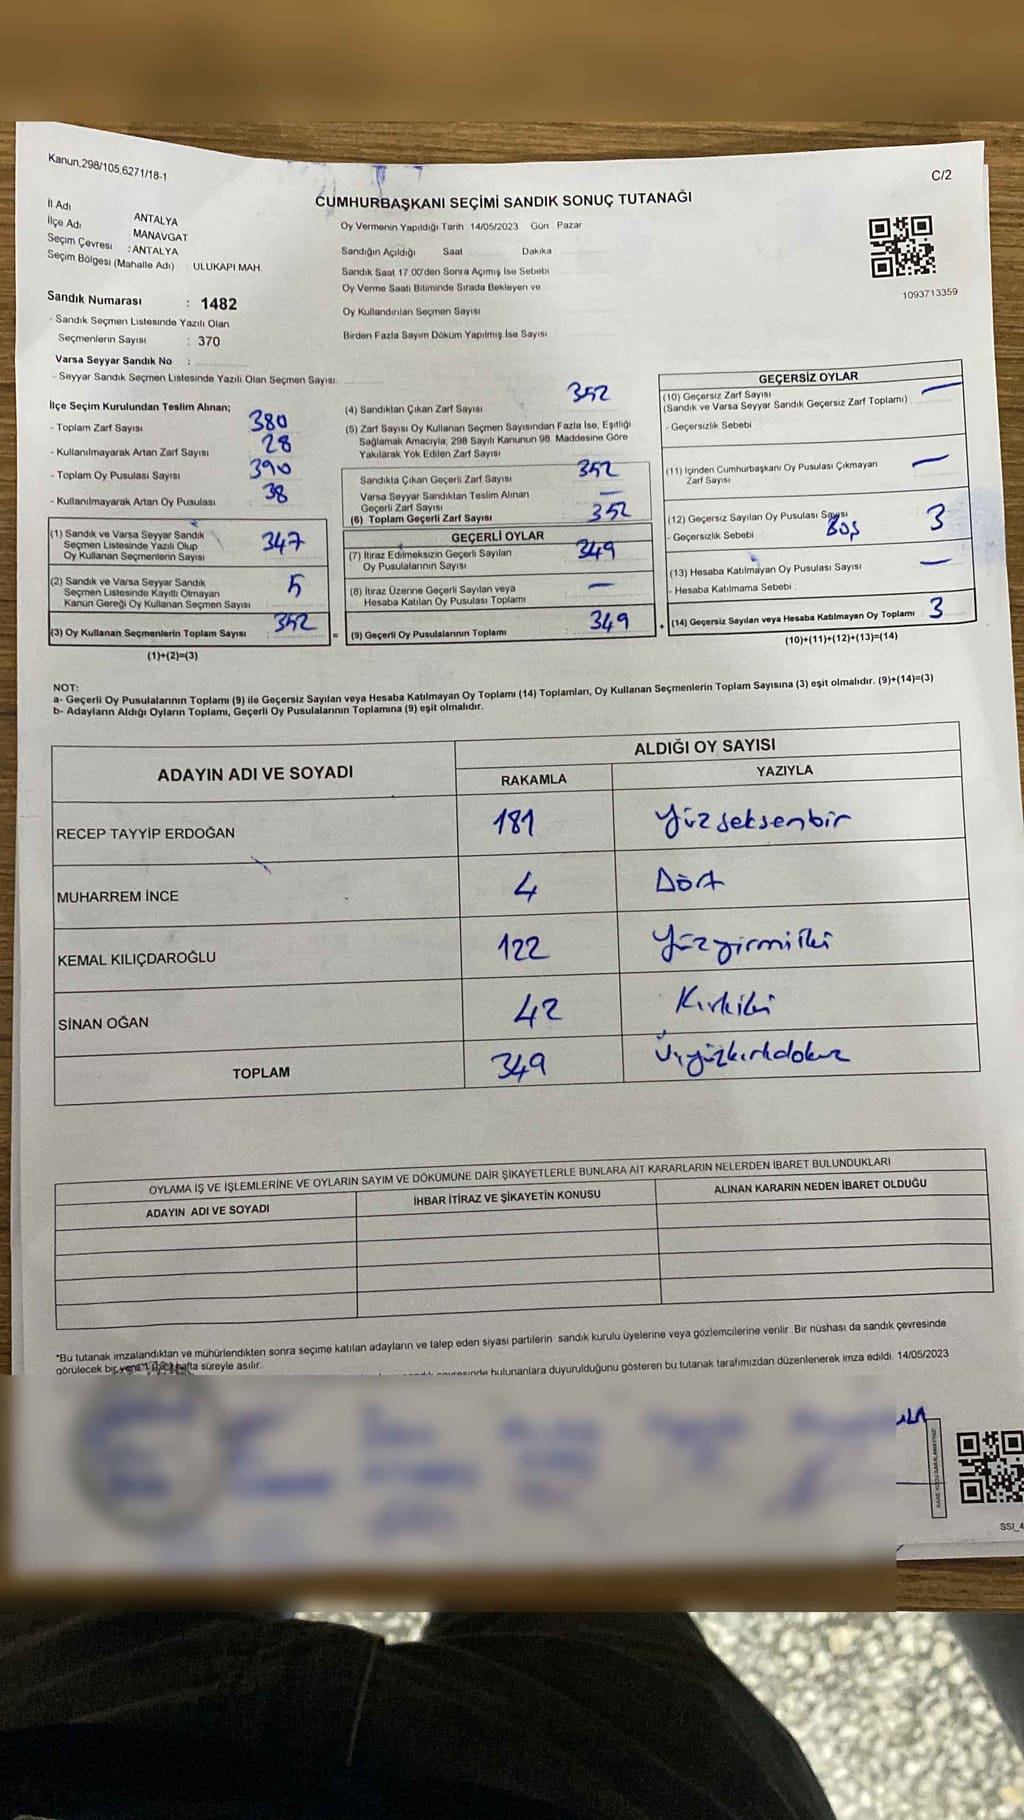 Kanun.298/105.6271/18-1
C/2
CUMHURBAŞKANI SEÇİMİ SANDIK SONUÇ TUTANAĞI
İl Adı ANTALYA
İlçe Adı MANAVGAT
Seçim Çevresi : ANTALYA
Seçim Bölgesi (Mahalle Adı) ULUKAPI MAH.
Oy Vermenin Yapıldığı Tarih 14/05/2023 Gün Pazar
Sandığın Açıldığı Saat Dakika
Sandık Saat 17.00'den Sonra Açımış İse Sebebi
Oy Verme Saati Bitiminde Sırada Bekleyen ve
Oy Kullandırılan Seçmen Sayısı
Birden Fazla Sayım Döküm Yapılmış İse Sayısı
1093713359
Sandık Numarası : 1482
- Sandık Seçmen Listesinde Yazılı Olan
Seçmenlerin Sayısı : 370
Varsa Seyyar Sandık No :
- Seyyar Sandık Seçmen Listesinde Yazılı Olan Seçmen Sayısı:
İlçe Seçim Kurulundan Teslim Alınan;
- Toplam Zarf Sayısı 380
- Kullanılmayarak Artan Zarf Sayısı 28
- Toplam Oy Pusulası Sayısı 390
- Kullanılmayarak Artan Oy Pusulası 38
(1) Sandık ve Varsa Seyyar Sandık
Seçmen Listesinde Yazılı Olup
Oy Kullanan Seçmenlerin Sayısı 347
(2) Sandık ve Varsa Seyyar Sandık
Seçmen Listesinde Kayıtlı Olmayan
Kanun Gereği Oy Kullanan Seçmen Sayısı 5
(3) Oy Kullanan Seçmenlerin Toplam Sayısı 352
(1)+(2)=(3)
(4) Sandıktan Çıkan Zarf Sayısı 352
(5) Zarf Sayısı Oy Kullanan Seçmen Sayısından Fazla İse, Eşitliği
Sağlamak Amacıyla, 298 Sayılı Kanunun 98. Maddesine Göre
Yakılarak Yok Edilen Zarf Sayısı
Sandıkta Çıkan Geçerli Zarf Sayısı 352
Varsa Seyyar Sandıktan Teslim Alınan
Geçerli Zarf Sayısı —
(6) Toplam Geçerli Zarf Sayısı 352
GEÇERLİ OYLAR
(7) İtiraz Edilmeksizin Geçerli Sayılan
Oy Pusulalarının Sayısı 349
(8) İtiraz Üzerine Geçerli Sayılan veya
Hesaba Katılan Oy Pusulası Toplamı —
= (9) Geçerli Oy Pusulalarının Toplamı 349
GEÇERSİZ OYLAR
(10) Geçersiz Zarf Sayısı —
(Sandık ve Varsa Seyyar Sandık Geçersiz Zarf Toplamı)
- Geçersizlik Sebebi
(11) İçinden Cumhurbaşkanı Oy Pusulası Çıkmayan
Zarf Sayısı —
(12) Geçersiz Sayılan Oy Pusulası Sayısı 3
- Geçersizlik Sebebi Boş
(13) Hesaba Katılmayan Oy Pusulası Sayısı —
- Hesaba Katılmama Sebebi
+ (14) Geçersiz Sayılan veya Hesaba Katılmayan Oy Toplamı 3
(10)+(11)+(12)+(13)=(14)
NOT:
a- Geçerli Oy Pusulalarının Toplamı (9) ile Geçersiz Sayılan veya Hesaba Katılmayan Oy Toplamı (14) Toplamları, Oy Kullanan Seçmenlerin Toplam Sayısına (3) eşit olmalıdır. (9)+(14)=(3)
b- Adayların Aldığı Oyların Toplamı, Geçerli Oy Pusulalarının Toplamına (9) eşit olmalıdır.
ADAYIN ADI VE SOYADI
ALDIĞI OY SAYISI
RAKAMLA YAZIYLA
RECEP TAYYİP ERDOĞAN 181 Yüzseksenbir
MUHARREM İNCE 4 Dört
KEMAL KILIÇDAROĞLU 122 Yüzyirmiiki
SİNAN OĞAN 42 Kırkiki
TOPLAM 349 Üçyüzkırkdokuz
OYLAMA İŞ VE İŞLEMLERİNE VE OYLARIN SAYIM VE DÖKÜMÜNE DAİR ŞİKAYETLERLE BUNLARA AİT KARARLARIN NELERDEN İBARET BULUNDUKLARI
ADAYIN ADI VE SOYADI İHBAR İTİRAZ VE ŞİKAYETİN KONUSU ALINAN KARARIN NEDEN İBARET OLDUĞU
*Bu tutanak imzalandıktan ve mühürlendikten sonra seçime katılan adayların ve talep eden siyasi partilerin sandık kurulu üyelerine veya gözlemcilerine verilir. Bir nüshası da sandık çevresinde
görülecek bir yere 1 (bir) hafta süreyle asılır.
çevresinde bulunanlara duyurulduğunu gösteren bu tutanak tarafımızdan düzenlenerek imza edildi. 14/05/2023